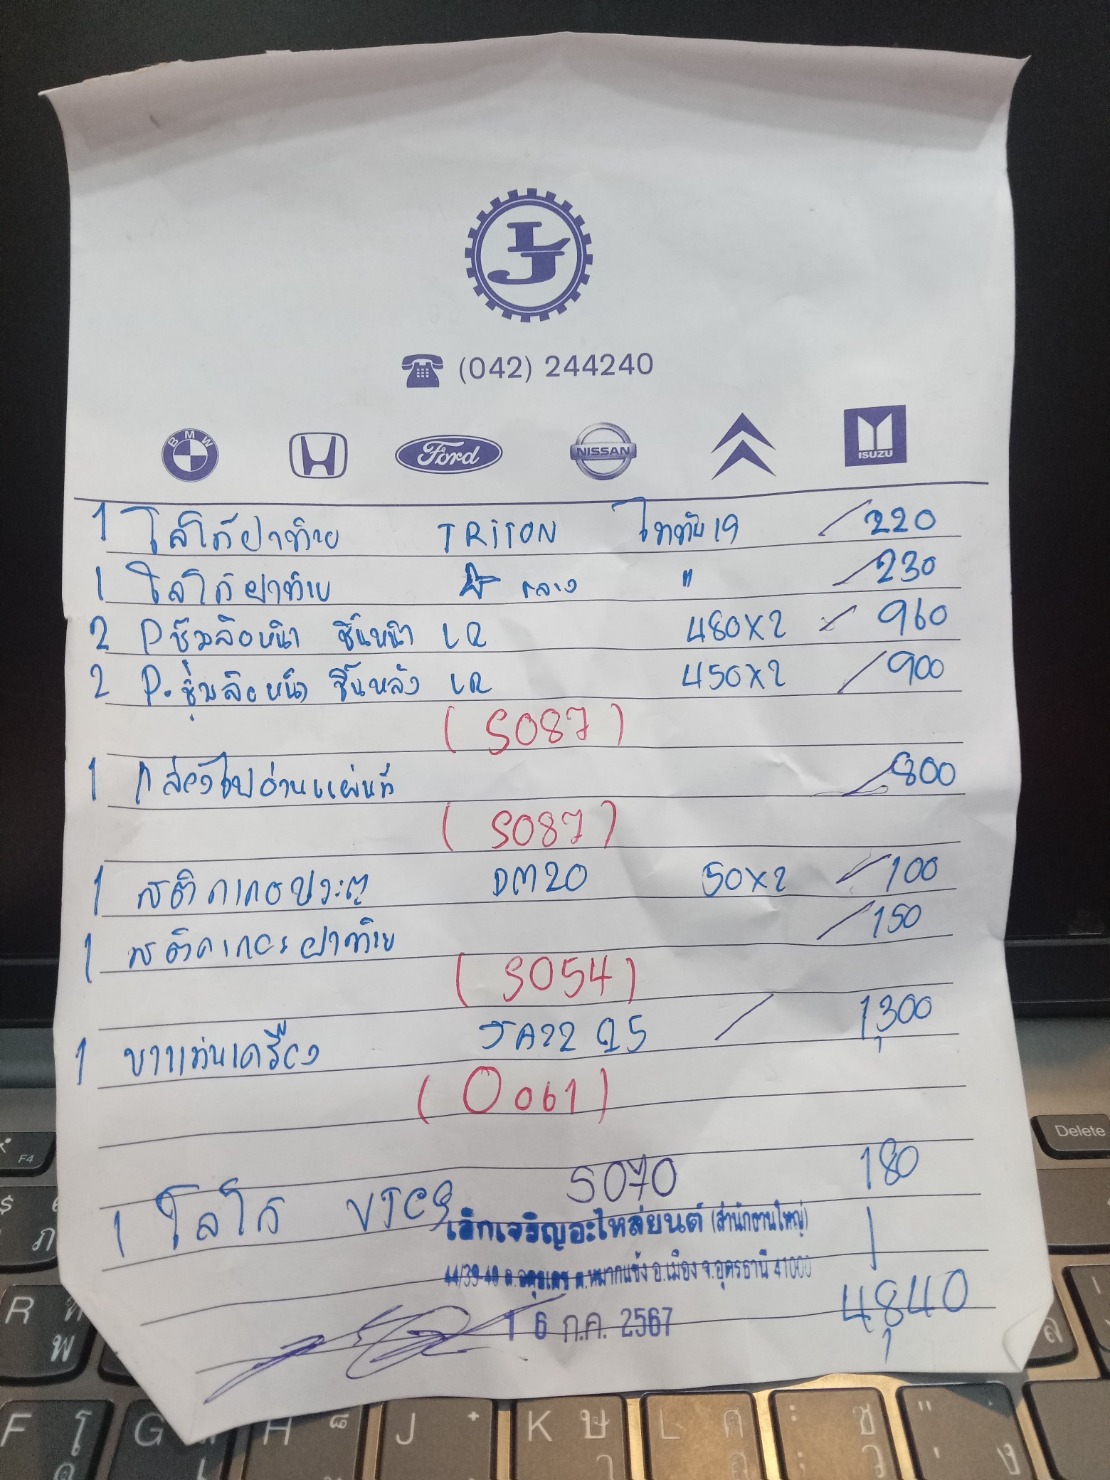 LJ
(042) 244240
BMW Ford NISSAN ISUZU
1 โลโก้ฝาท้าย TRITON ไททัน 19 220
1 โลโก้ฝาท้าย กลาง " 230
2 P.ซุ้มล้อหน้า ชิ้นหน้า LR 480X2 960
2 P.ซุ้มล้อหน้า ชิ้นหลัง LR 450X2 900
(S087)
1 กล่อง 800
(S087)
1 สติกเกอประตู DM20 50X2 100
1 สติกเกอร ฝาท้าย 150
(S054)
1 ขาแท่นเครื่อง JA22 Q5 1,300
(O061)
S070 180
1 โลโก้ VTCS
เลิกเจริญอะไหล่ยนต์ (สำนักงานใหญ่)
44/39-40 ถ.อดุลเดช ต.หมากแข้ง อ.เมือง จ.อุดรธานี 41000
4,840
16 ก.ค. 2567
Delete
F4
R
F G H J K L